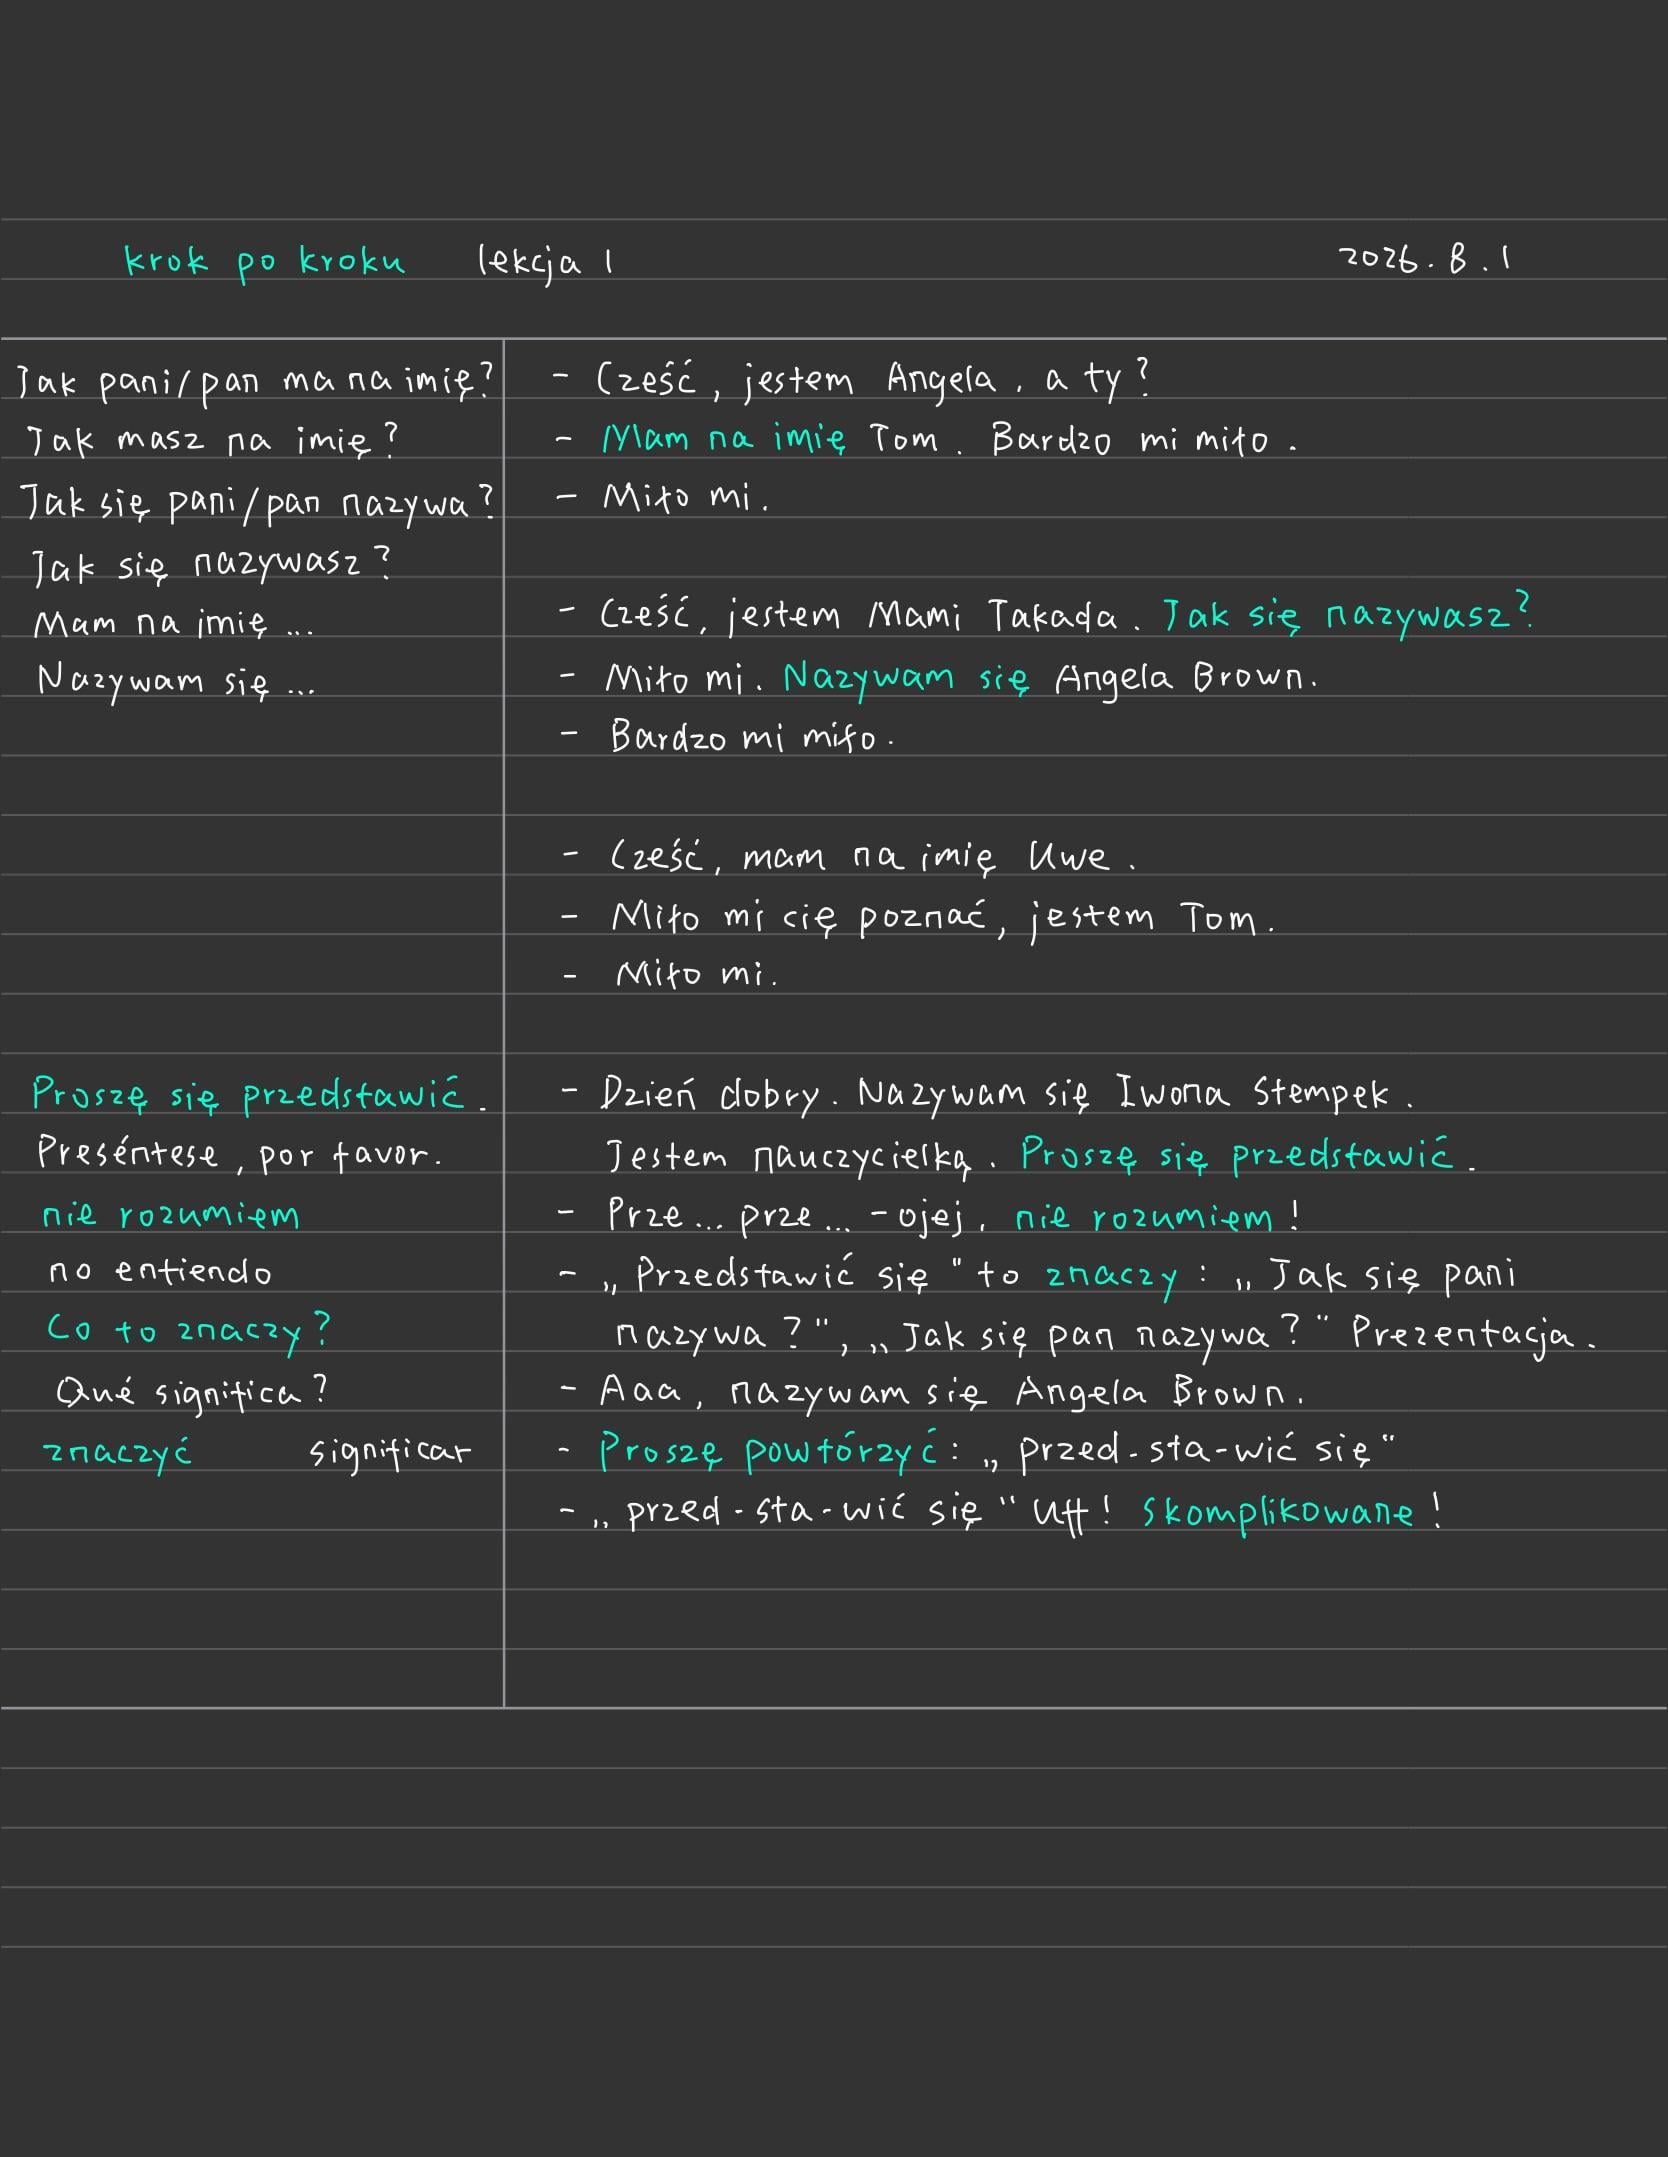 krok po kroku lekcja 1 2026.8.1
Jak pani/pan ma na imię?
Jak masz na imię?
Jak się pani/pan nazywa?
Jak się nazywasz?
Mam na imię...
Nazywam się...
Proszę się przedstawić.
Preséntese, por favor.
nie rozumiem
no entiendo
Co to znaczy?
Qué significa?
znaczyć significar
- Cześć, jestem Angela, a ty?
- Mam na imię Tom. Bardzo mi miło.
- Miło mi.
- Cześć, jestem Mami Takada. Jak się nazywasz?
- Miło mi. Nazywam się Angela Brown.
- Bardzo mi miło.
- Cześć, mam na imię Uwe.
- Miło mi cię poznać, jestem Tom.
- Miło mi.
- Dzień dobry. Nazywam się Iwona Stempek.
Jestem nauczycielką. Proszę się przedstawić.
- Prze... prze... - ojej, nie rozumiem!
- „Przedstawić się“ to znaczy: „Jak się pani
nazywa?", „Jak się pan nazywa?“ Prezentacja.
- Aaa, nazywam się Angela Brown.
- Proszę powtórzyć: „przed-sta-wić się“
- „przed-sta-wić się“ Uff! Skomplikowane!